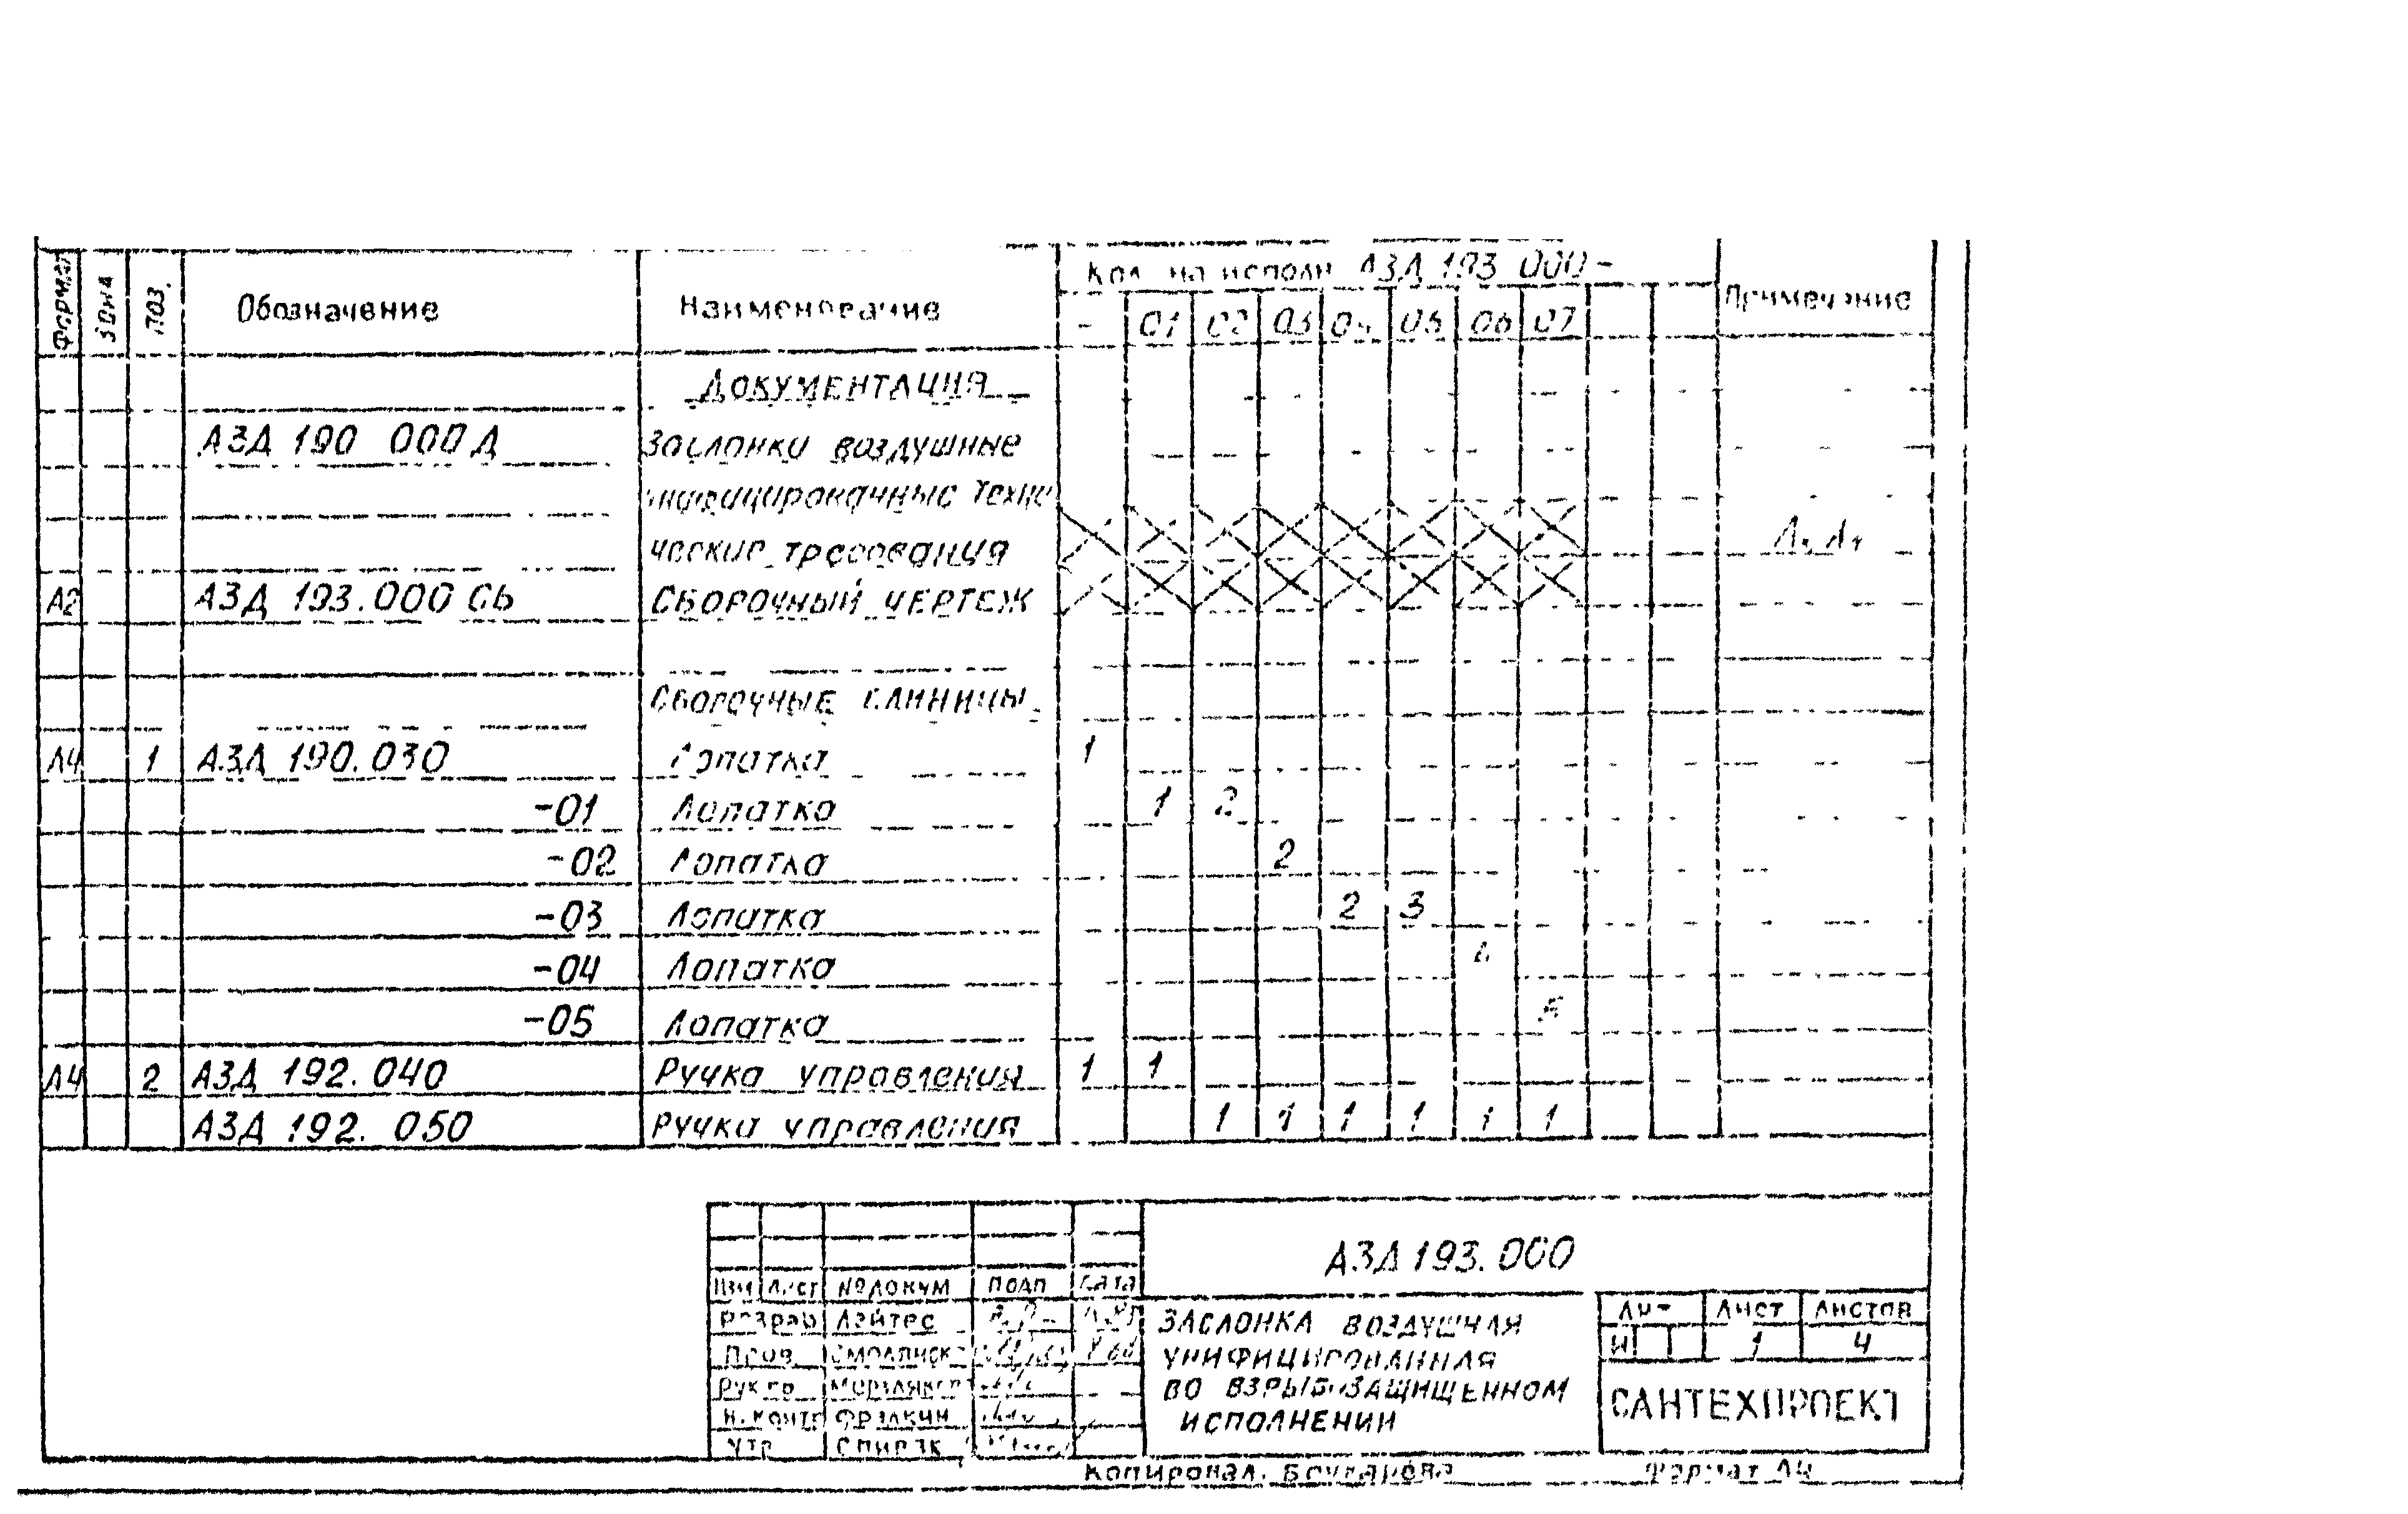 Формат Зона Поз. Обозначение Наименование Кол. на исполн АЗД 193 000- Примечание
- 01 02 03 04 05 06 07
Документация
АЗД 190 000 Д Заслонки воздушные
унифицированные Техни
ческие требования
А2 АЗД 193.000 СБ Сборочный чертеж
Сборочные единицы
А4 1 АЗД 190.030 Лопатка 1
-01 Лопатка 1 2
-02 Лопатка 2
-03 Лопатка 2 3
-04 Лопатка 4
-05 Лопатка 5
А4 2 АЗД 192.040 Ручка управления 1 1
АЗД 192.050 Ручка управления 1 1 1 1 1 1
АЗД 193.000
Изм Лист № докум Подп Дата
Разраб Лейтес
Пров. Смолянск
Рук.гр.
Н.контр Фрадкин
Утв Спивак
ЗАСЛОНКА ВОЗДУШНАЯ
УНИФИЦИРОВАННАЯ
ВО ВЗРЫВОЗАЩИЩЕННОМ
ИСПОЛНЕНИИ
Лит Лист Листов
И 1 4
САНТЕХПРОЕКТ
Копировал. Формат А4